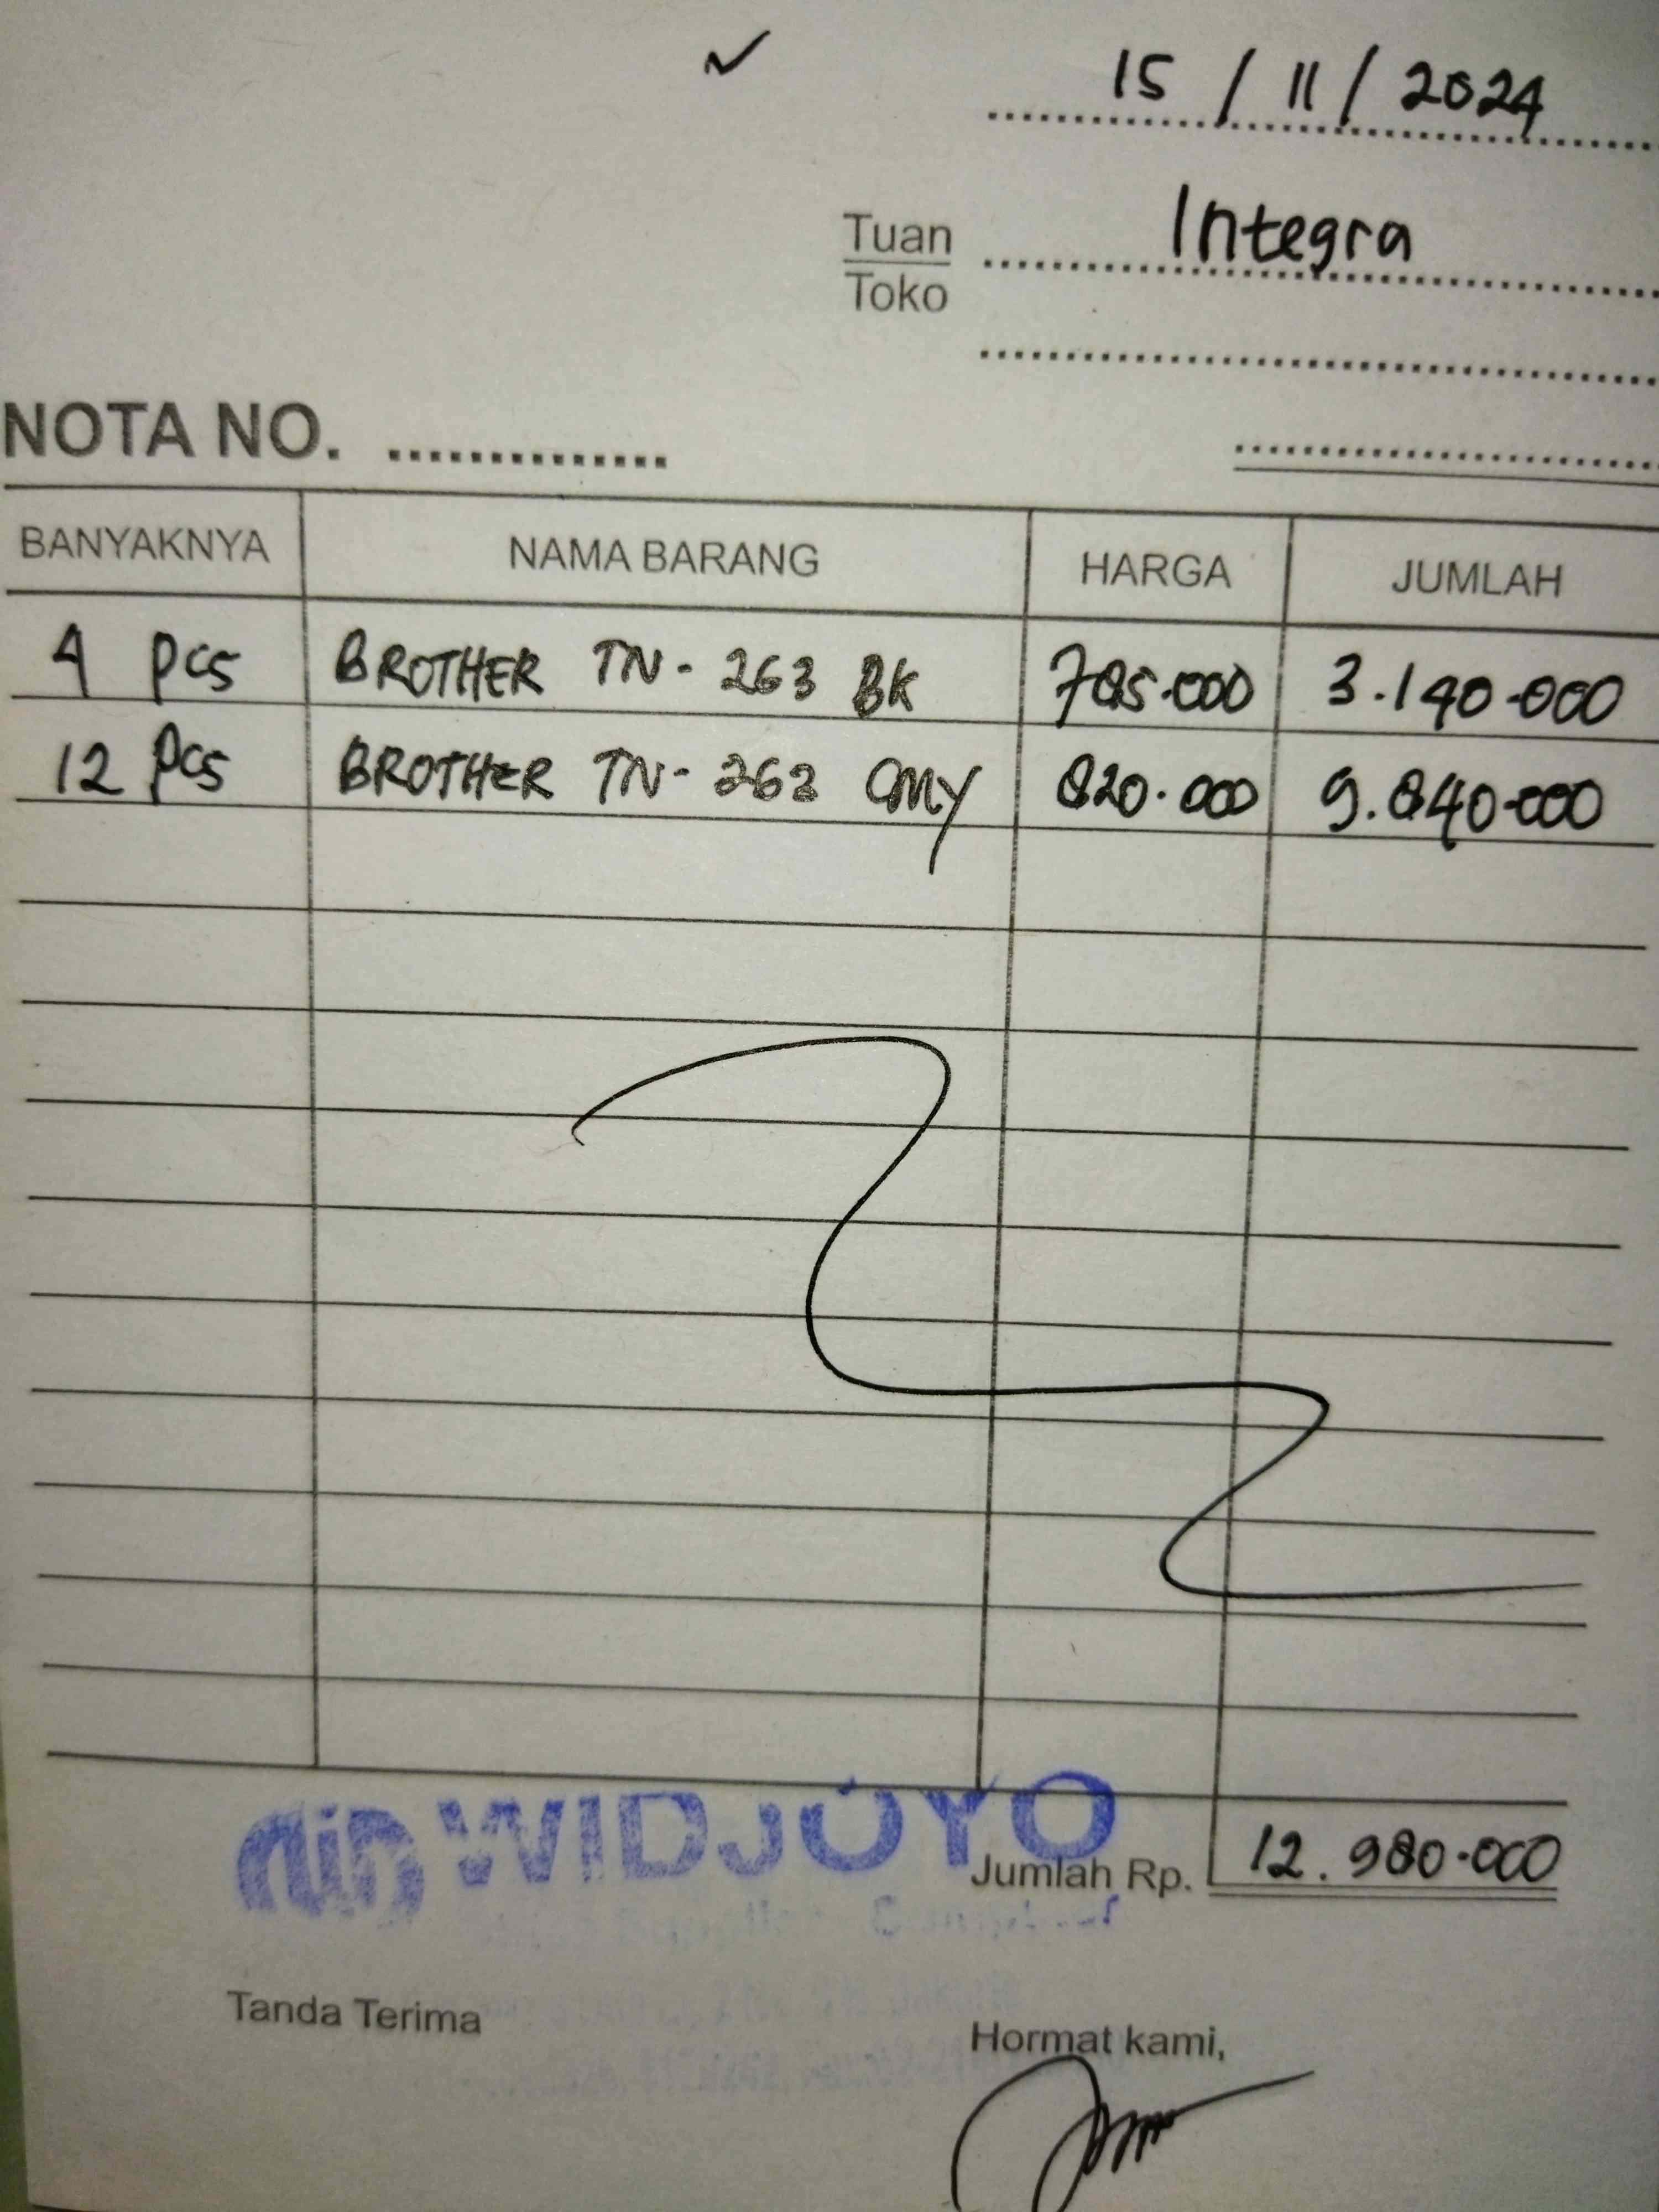 15 / 11 / 2024
Tuan Integra
Toko
NOTA NO. ..............
BANYAKNYA NAMA BARANG HARGA JUMLAH
4 pcs BROTHER TN-263 BK 785.000 3.140.000
12 pcs BROTHER TN-263 CMY 820.000 9.840.000
WIDJOYO
Jumlah Rp. 12.980.000
Tanda Terima
Hormat kami,